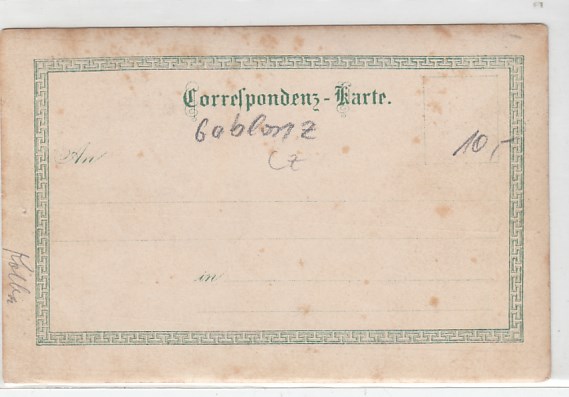 Correspondenz-Karte.
Gablonz
CZ
10,-
An
in